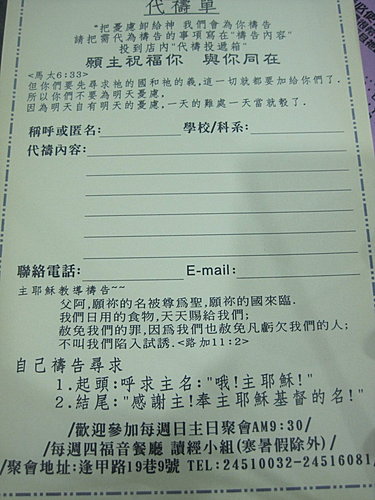 代禱單
"把憂慮卸給神 我們會為你禱告
請把需代為禱告的事項寫在"禱告內容"
投到店內"代禱投遞箱"
願主祝福你 與你同在
<馬太6:33>
但你們要先尋求祂的國和祂的義,這一切就都要加給你們了.
所以你們不要為明天憂慮,
因為明天自有明天的憂慮,一天的難處一天當就彀了.
稱呼或匿名: 學校/科系:
代禱內容:
聯絡電話: E-mail:
主耶穌教導禱告~~
父阿,願祢的名被尊爲聖,願祢的國來臨.
我們日用的食物,天天賜給我們;
赦免我們的罪,因爲我們也赦免凡虧欠我們的人;
不叫我們陷入試誘.<路加11:2>
自己禱告尋求
1.起頭:呼求主名:"哦!主耶穌!"
2.結尾:"感謝主!奉主耶穌基督的名!"
/歡迎參加每週日主日聚會AM9:30/
/每週四福音餐廳 讀經小組(寒暑假除外)/
/聚會地址:逢甲路19巷9號 TEL:24510032-24516081/